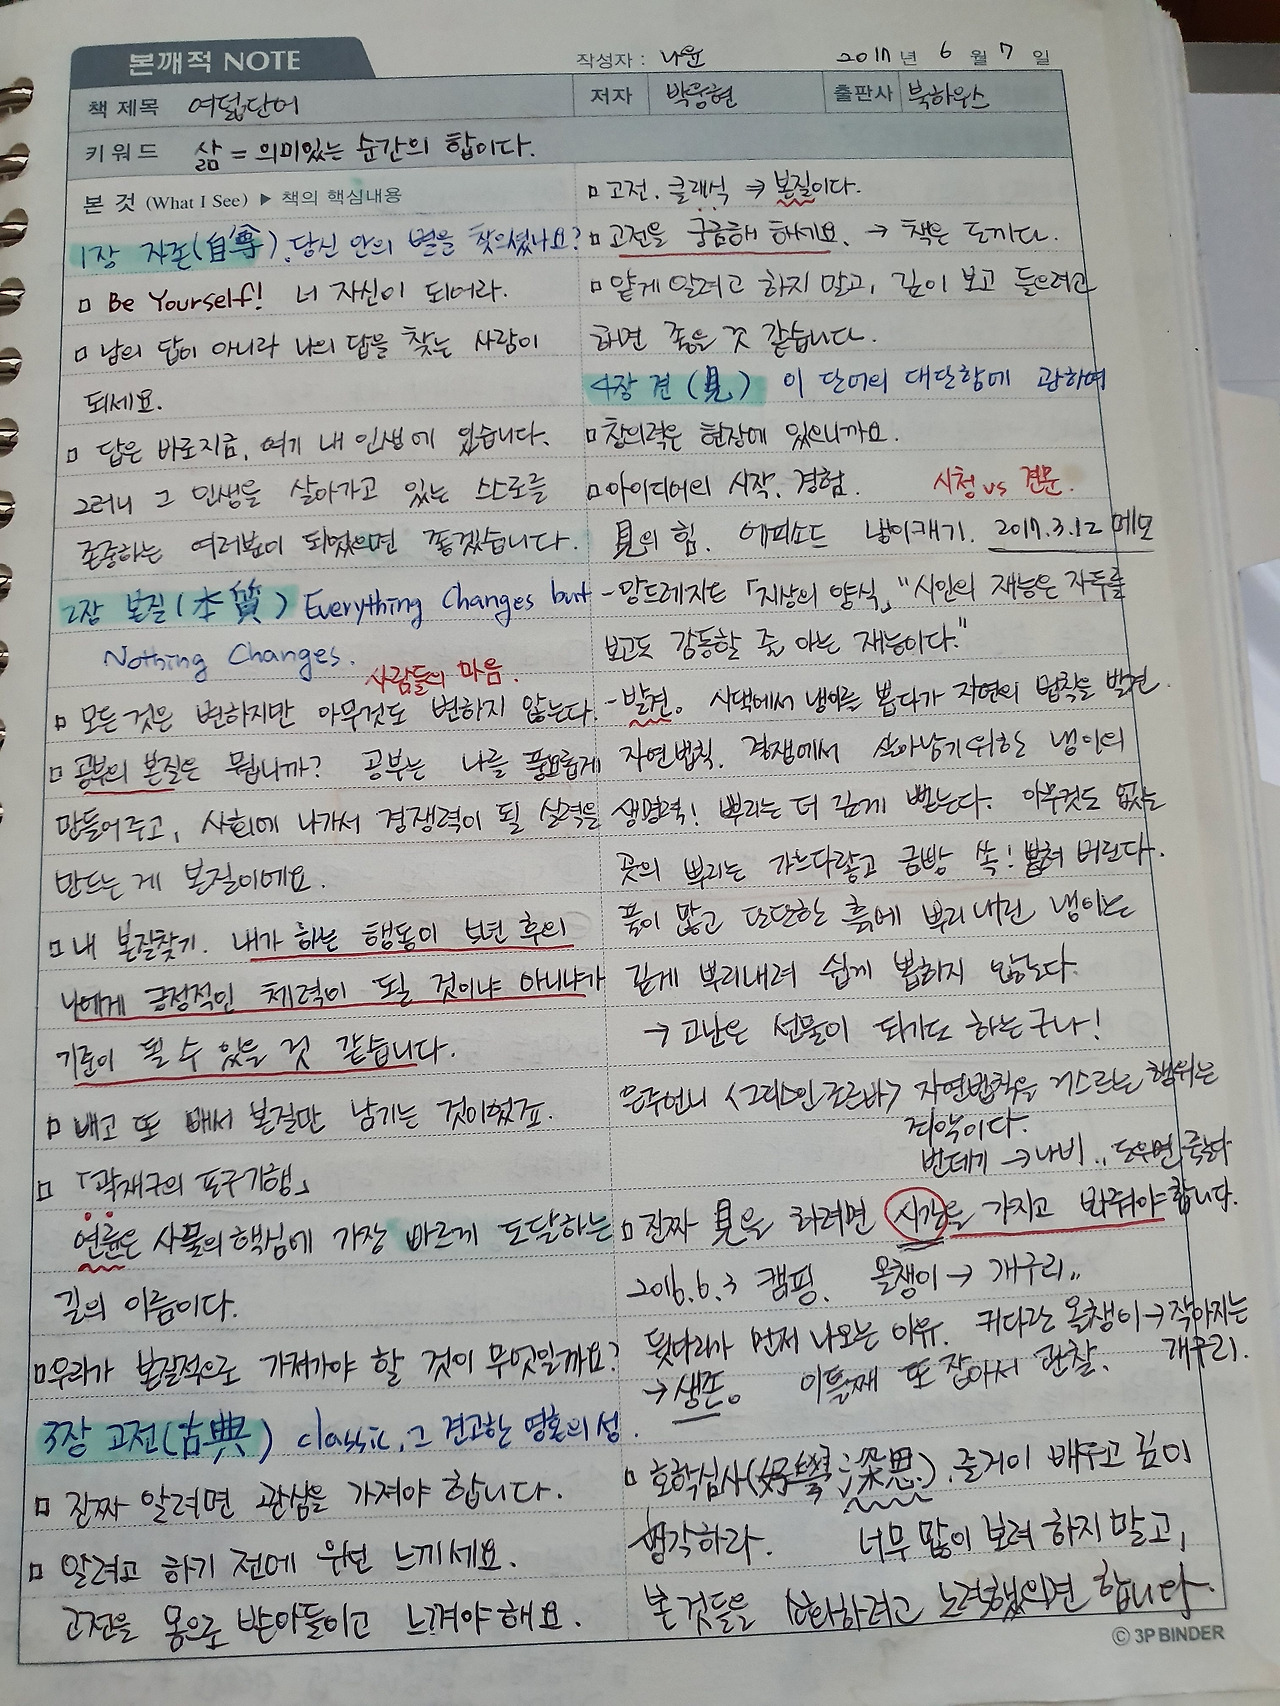 본깨적 NOTE
작성자 : 나윤 2017 년 6 월 7 일
책 제목 여덟단어 저자 박웅현 출판사 북하우스
키워드 삶 = 의미있는 순간의 합이다.
본 것 (What I See) ▶ 책의 핵심내용
1장 자존(自尊). 당신 안의 별을 찾으셨나요?
□ Be Yourself! 너 자신이 되어라.
□ 남의 답이 아니라 나의 답을 찾는 사람이
되세요.
□ 답은 바로지금, 여기 내 인생에 있습니다.
그러니 그 인생을 살아가고 있는 스스로를
존중하는 여러분이 되었으면 좋겠습니다.
2장 본질(本質) Everything Changes but
Nothing Changes.
사람들의 마음.
□ 모든 것은 변하지만 아무것도 변하지 않는다.
□ 공부의 본질은 뭡니까? 공부는 나를 풍요롭게
만들어주고, 사회에 나가서 경쟁력이 될 실력을
만드는 게 본질이에요.
□ 내 본질찾기. 내가 하는 행동이 5년 후의
나에게 긍정적인 체력이 될 것이냐 아니냐가
기준이 될 수 있을 것 같습니다.
□ 빼고 또 빼서 본질만 남기는 것이었죠.
□ 「곽재구의 포구기행」
연륜은 사물의 핵심에 가장 빠르게 도달하는
길의 이름이다.
□ 우리가 본질적으로 가져가야 할 것이 무엇일까요?
3장 고전(古典) classic, 그 견고한 영혼의 성.
□ 진짜 알려면 관심을 가져야 합니다.
□ 알려고 하기 전에 우선 느끼세요.
고전을 몸으로 받아들이고 느껴야 해요.
□ 고전. 클래식 ⇒ 본질이다.
□ 고전을 궁금해 하세요. → 책은 도끼다.
□ 얕게 알려고 하지 말고, 깊이 보고 들으려고
하면 좋을 것 같습니다.
4장 견(見) 이 단어의 대단함에 관하여
□ 창의력은 현장에 있으니까요.
□ 아이디어의 시작. 경험. 시청 vs 견문.
見의 힘. 에피소드 냉이캐기. 2017.3.12 메모
- 앙드레지드 「지상의 양식」 "시인의 재능은 자두를
보고도 감동할 줄 아는 재능이다."
- 발견. 시댁에서 냉이를 뽑다가 자연의 법칙을 발견.
자연법칙. 경쟁에서 살아남기위한 냉이의
생명력! 뿌리는 더 깊게 뻗는다. 아무것도 없는
곳의 뿌리는 가느다랗고 금방 쏙! 뽑혀 버린다.
풀이 많고 단단한 흙에 뿌리내린 냉이는
깊게 뿌리내려 쉽게 뽑히지 않는다.
→ 고난은 선물이 되기도 하는구나!
은주언니 <그리스인 조르바> 자연법칙을 거스르는 행위는
죄악이다.
번데기 → 나비.. 도우면 죽는다
□ 진짜 見을 하려면 시간을 가지고 봐줘야 합니다.
2016.6.3 캠핑. 올챙이 → 개구리..
뒷다리가 먼저 나오는 이유. 커다란 올챙이 → 작아지는
개구리.
→ 생존. 이틀째 또 잡아서 관찰.
□ 호학심사(好學深思). 즐거이 배우고 깊이
생각하라. 너무 많이 보려 하지 말고,
본 것들을 소화하려고 노력했으면 합니다.
ⓒ 3P BINDER